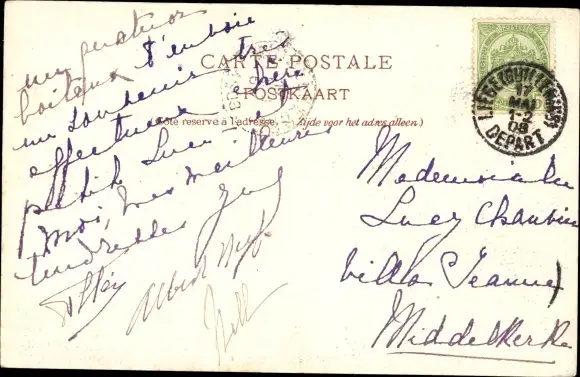 CARTE POSTALE
POSTKAART
Côté reservé à l'adresse. Zijde voor het adres alleen.)
LIEGE (GUILLEMINS)
17
MAI
1-2
08
DEPART
un quatuor
boiteux t'envoie
un souvenir très
affectueux chère
petite Lucy et
Moi, mes meilleures
tendresses
Albert
Mademoiselle
Lucy
Villa Jeanne
Middelkerke